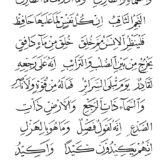 النجم الثاقب إن كل نفس لما عليها حافظ
فلينظر الإنسان مم خلق خلق من ماء دافق
يخرج من بين الصلب والترائب إنه على رجعه
لقادر يوم تبلى السرائر فما له من قوة ولا ناصر
والسماء ذات الرجع والأرض ذات
الصدع إنه لقول فصل وما هو بالهزل
إنهم يكيدون كيدا وأكيد